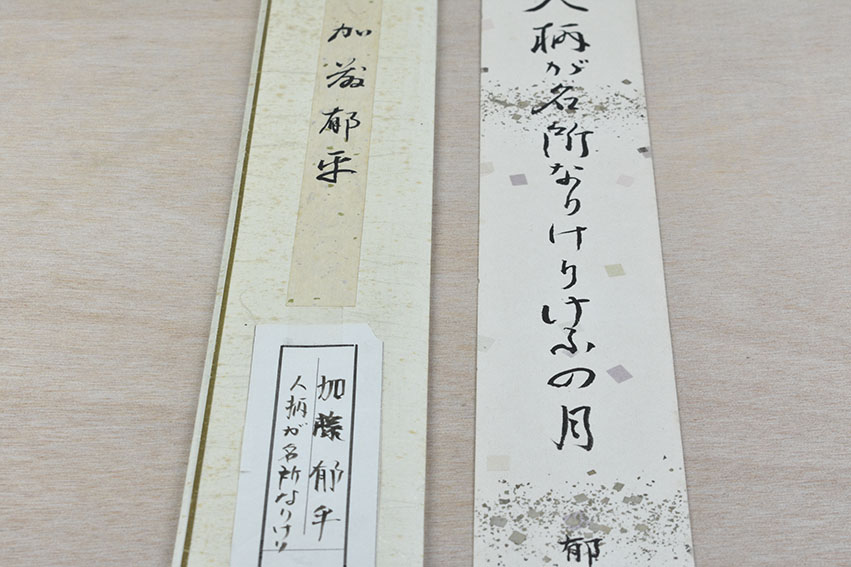 人柄が名所なりけりけふの月
郁
加藤郁乎
加藤郁乎
人柄が名所なりけり